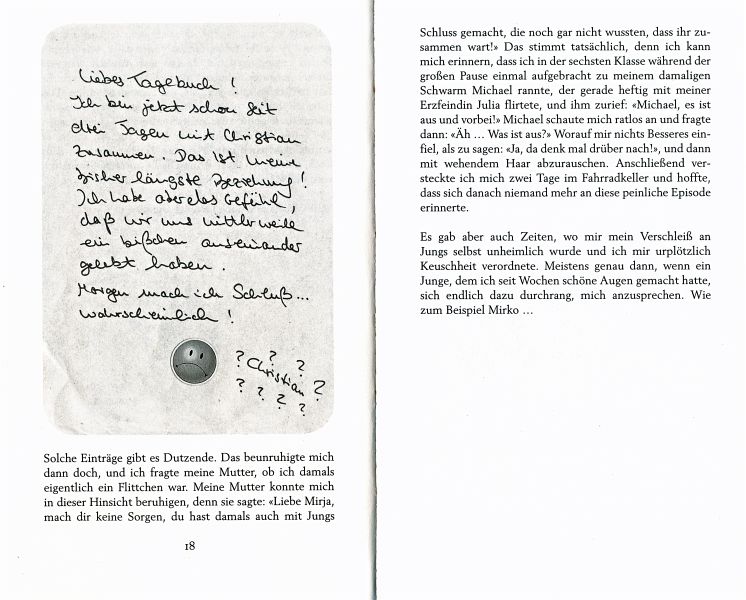 Liebes Tagebuch !
Ich bin jetzt schon seit
drei Tagen mit Christian
zusammen. Das ist meine
bisher längste Beziehung!
Ich habe aber das Gefühl,
daß wir uns mittlerweile
ein bißchen auseinander
gelebt haben.
Morgen mach ich Schluß...
wahrscheinlich !
? ? ?
? Christian ?
? ? ? ?
Solche Einträge gibt es Dutzende. Das beunruhigte mich
dann doch, und ich fragte meine Mutter, ob ich damals
eigentlich ein Flittchen war. Meine Mutter konnte mich
in dieser Hinsicht beruhigen, denn sie sagte: «Liebe Mirja,
mach dir keine Sorgen, du hast damals auch mit Jungs
18
Schluss gemacht, die noch gar nicht wussten, dass ihr zu-
sammen wart!» Das stimmt tatsächlich, denn ich kann
mich erinnern, dass ich in der sechsten Klasse während der
großen Pause einmal aufgebracht zu meinem damaligen
Schwarm Michael rannte, der gerade heftig mit meiner
Erzfeindin Julia flirtete, und ihm zurief: «Michael, es ist
aus und vorbei!» Michael schaute mich ratlos an und fragte
dann: «Äh … Was ist aus?» Worauf mir nichts Besseres ein-
fiel, als zu sagen: «Ja, da denk mal drüber nach!», und dann
mit wehendem Haar abzurauschen. Anschließend ver-
steckte ich mich zwei Tage im Fahrradkeller und hoffte,
dass sich danach niemand mehr an diese peinliche Episode
erinnerte.
Es gab aber auch Zeiten, wo mir mein Verschleiß an
Jungs selbst unheimlich wurde und ich mir urplötzlich
Keuschheit verordnete. Meistens genau dann, wenn ein
Junge, dem ich seit Wochen schöne Augen gemacht hatte,
sich endlich dazu durchrang, mich anzusprechen. Wie
zum Beispiel Mirko …